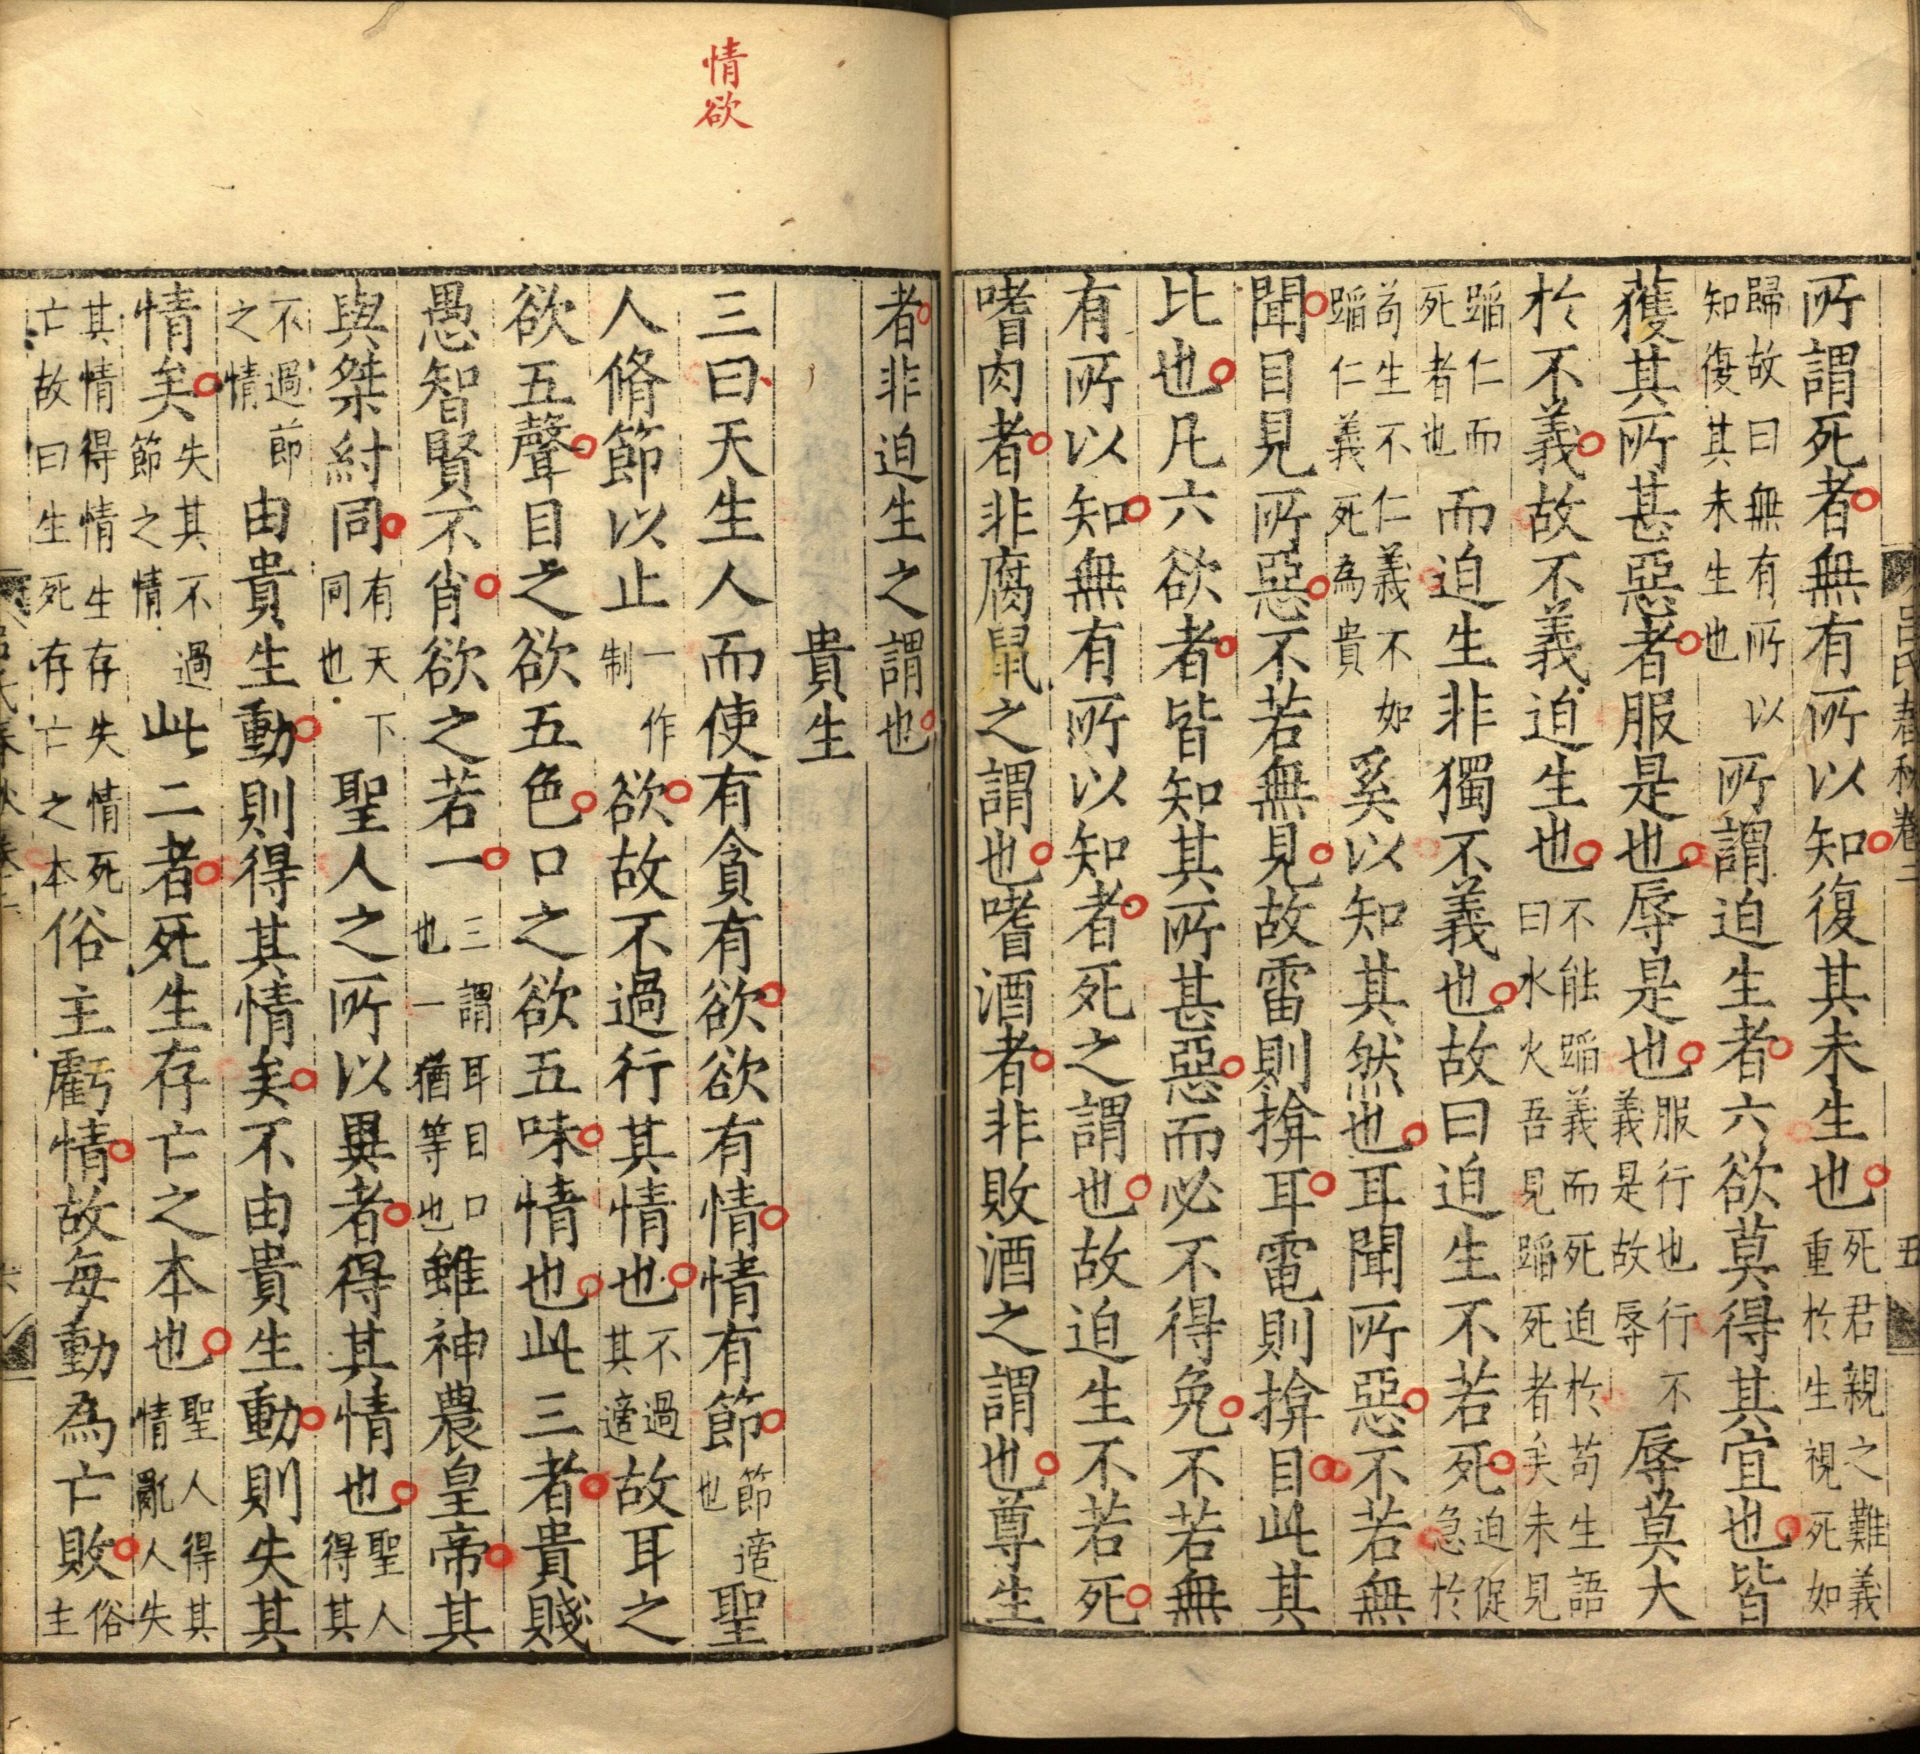 呂氏春秋卷二 五
所謂死者無有所以知復其未生也死君親之難義重於生視死如
歸故曰無有所以知復其未生也所謂迫生者六欲莫得其宜也皆
獲其所甚惡者服是也辱是也服行也行不義是故辱辱莫大
於不義故不義迫生也不能蹈義而死迫於苟生語曰水火吾見蹈死者矣未見
蹈仁而死者也而迫生非獨不義也故曰迫生不若死迫促急於
苟生不仁義不如蹈仁義死為貴奚以知其然也耳聞所惡不若無
聞目見所惡不若無見故雷則揜耳電則揜目此其
比也凡六欲者皆知其所甚惡而必不得免不若無
有所以知無有所以知者死之謂也故迫生不若死
嗜肉者非腐鼠之謂也嗜酒者非敗酒之謂也尊生
者非迫生之謂也
貴生
情欲
三曰天生人而使有貪有欲欲有情情有節節適也聖
人脩節以止一作制欲故不過行其情也不過其適故耳之
欲五聲目之欲五色口之欲五味情也此三者貴賤
愚智賢不肖欲之若一三謂耳目口也一猶等也雖神農皇帝其
與桀紂同有天下同也聖人之所以異者得其情也聖人得其
不過節之情由貴生動則得其情矣不由貴生動則失其
情矣失其不過節之情此二者死生存亡之本也聖人得其情亂人失
其情得情生存失情死亡故曰生死存亡之本俗主虧情故每動為亡敗俗主